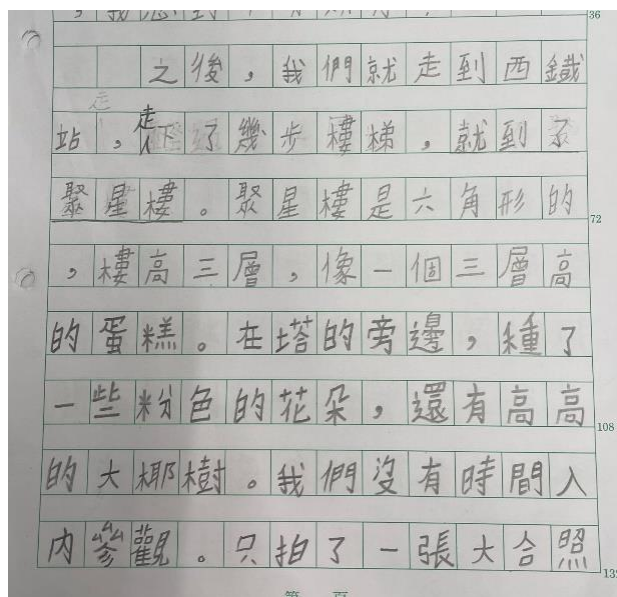 36
之後，我們就走到西鐵
站，走下了幾步樓梯，就到了
聚星樓。聚星樓是六角形的
72
，樓高三層，像一個三層高
的蛋糕。在塔的旁邊，種了
一些粉色的花朵，還有高高
108
的大椰樹。我們沒有時間入
內參觀。只拍了一張大合照
132